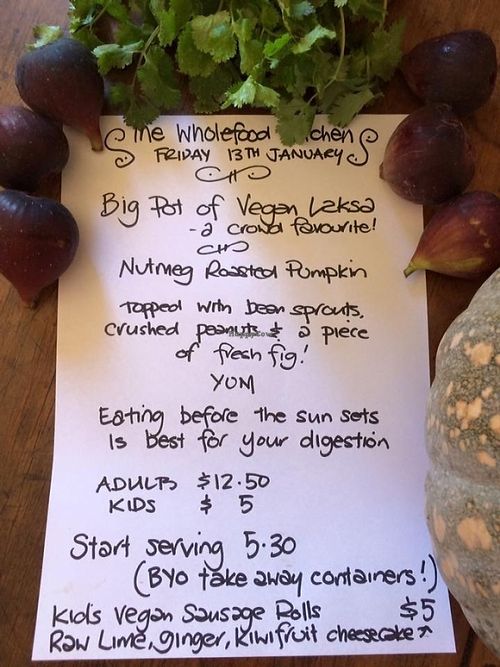 The Wholefood Kitchen
FRIDAY 13TH JANUARY
Big Pot of Vegan Laksa
- a crowd favourite!
Nutmeg Roasted Pumpkin
Topped with bean sprouts,
crushed peanuts & a piece
of fresh fig!
YUM
Eating before the sun sets
is best for your digestion
ADULTS $12.50
KIDS $ 5
Start serving 5.30
(BYO take away containers!)
Kid's Vegan Sausage Rolls $5
Raw Lime, ginger, Kiwifruit cheesecake ^